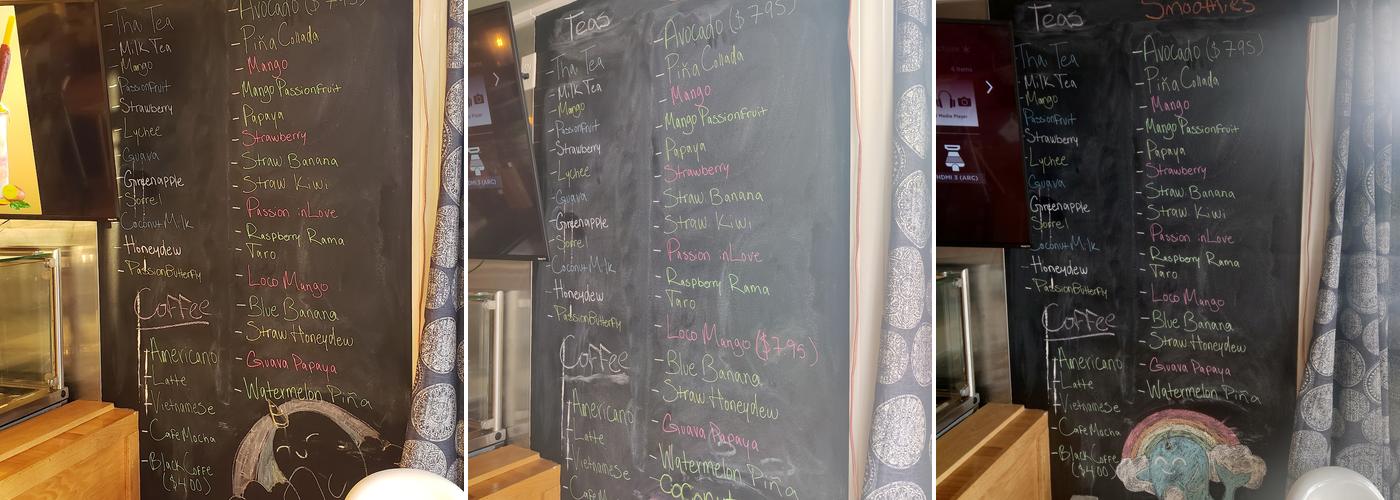 -Thai Tea
-Milk Tea
-Mango
-Passionfruit
-Strawberry
-Lychee
-Guava
-Greenapple
-Sorrel
-Coconut Milk
-Honeydew
-PassionButterfly
Coffee
-Americano
-Latte
-Vietnamese
-Cafe Mocha
-Black Coffe
($4.00)
-Avocado ($7.95)
-Piña Collada
-Mango
-Mango Passionfruit
-Papaya
-Strawberry
-Straw Banana
-Straw Kiwi
-Passion inLove
-Raspberry Rama
-Taro
-Loco Mango
-Blue Banana
-Straw Honeydew
-Guava Papaya
-Watermelon Piña
HDMI 3 (ARC)
Teas
-Thai Tea
-Milk Tea
-Mango
-Passionfruit
-Strawberry
-Lychee
-Guava
-Greenapple
-Sorrel
-Coconut Milk
-Honeydew
-PassionButterfly
Coffee
-Americano
-Latte
-Vietnamese
-Cafe Mocha
-Avocado ($7.95)
-Piña Collada
-Mango
-Mango Passionfruit
-Papaya
-Strawberry
-Straw Banana
-Straw Kiwi
-Passion inLove
-Raspberry Rama
-Taro
-Loco Mango ($7.95)
-Blue Banana
-Straw Honeydew
-Guava Papaya
-Watermelon Piña
-Coconut
4 items
Media Player
HDMI 3 (ARC)
Teas
-Thai Tea
-Milk Tea
-Mango
-Passionfruit
-Strawberry
-Lychee
-Guava
-Greenapple
-Sorrel
-Coconut Milk
-Honeydew
-PassionButterfly
Coffee
-Americano
-Latte
-Vietnamese
-Cafe Mocha
-Black Coffe
($4.00)
Smoothies
-Avocado ($7.95)
-Piña Collada
-Mango
-Mango Passionfruit
-Papaya
-Strawberry
-Straw Banana
-Straw Kiwi
-Passion inLove
-Raspberry Rama
-Taro
-Loco Mango
-Blue Banana
-Straw Honeydew
-Guava Papaya
-Watermelon Piña